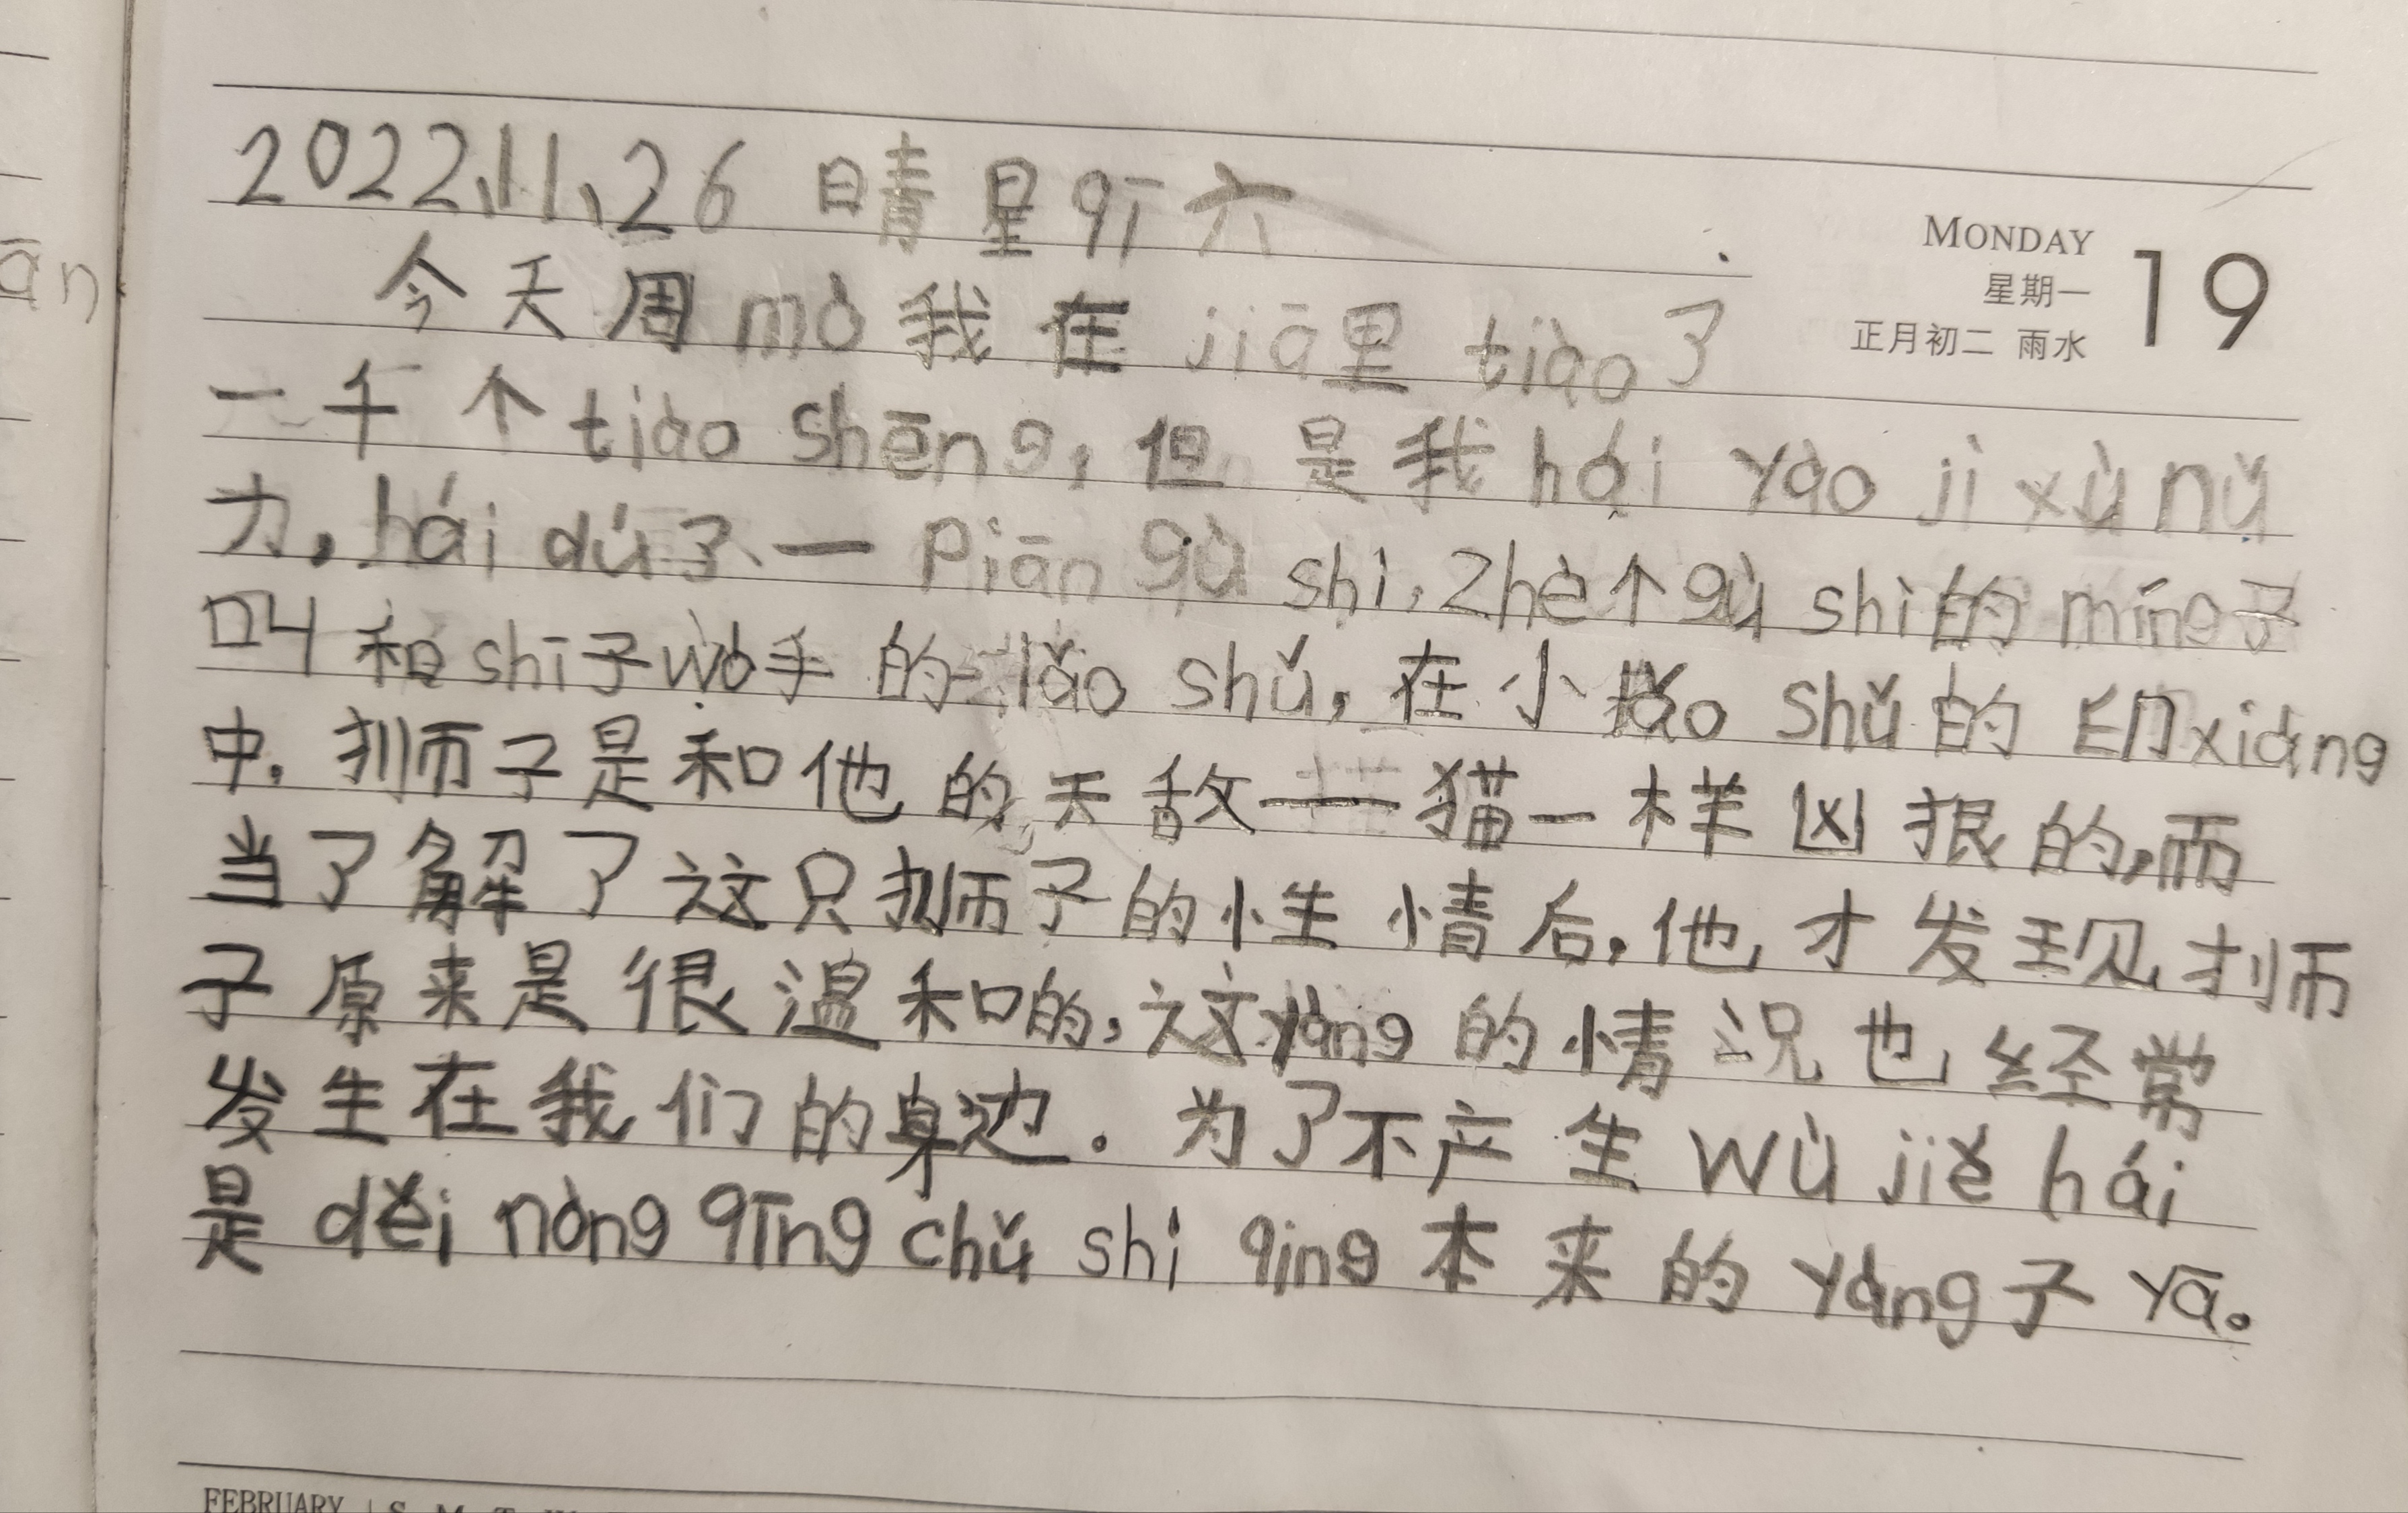 2022、11、26 晴 星qī六
MONDAY
星期一
正月初二 雨水
19
ān
今天周mò我在jiā里tiào了
一千个tiào shēng，但是我hái yào jì xù nǔ
力，hái dú了一Piān gù shì，zhè个gù shì的míng子
叫和shī子wò手的lǎo shǔ，在小lǎo shǔ的印xiàng
中，狮子是和他的天敌——猫一样凶狠的，而
当了解了这只狮子的性情后，他才发现狮
子原来是很温和的，这yàng的情况也经常
发生在我们的身边。为了不产生wù jiě hái
是děi nòng qīng chǔ shì qing本来的yàng子yā。
FEBRUARY